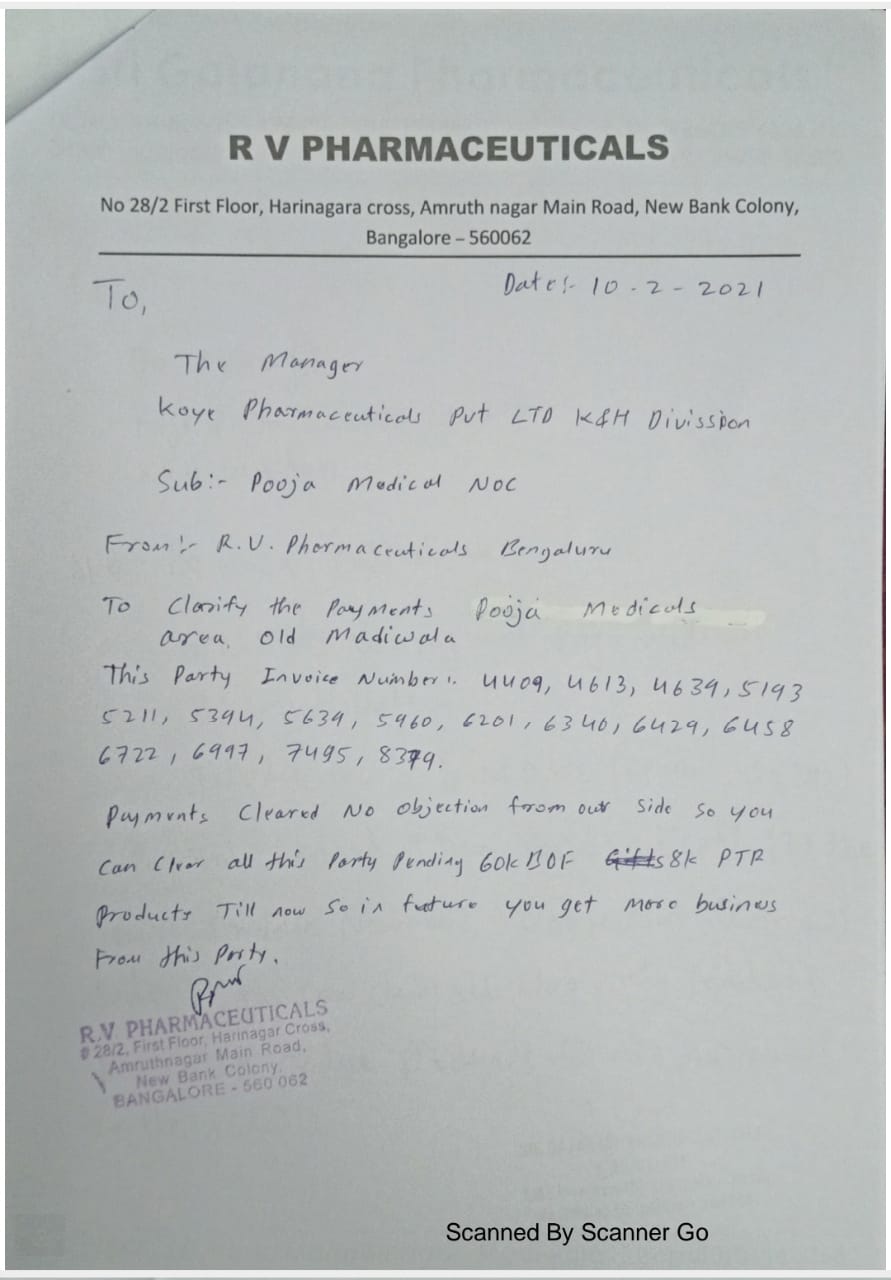 R V PHARMACEUTICALS
No 28/2 First Floor, Harinagara cross, Amruth nagar Main Road, New Bank Colony,
Bangalore – 560062
Date:- 10-2-2021
To,
The Manager
Koye Pharmaceuticals Put LTD K&H Divission
Sub:- Pooja Medical NOC
From:- R.V. Pharmaceuticals Bengaluru
To Clarify the Payments Pooja Medicals
area, old Madiwala
This Party Invoice Number:. 4409, 4613, 4639, 5193
5211, 5394, 5639, 5960, 6201, 6340, 6429, 6458
6722, 6997, 7495, 8379.
Payments Cleared No objection from our side so you
Can Clear all this Party Pending 60k 8k PTR
Products Till now so in future you get more business
From this Party.
R.V. PHARMACEUTICALS
# 28/2, First Floor, Harinagar Cross,
Amruthnagar Main Road,
New Bank Colony,
BANGALORE - 560 062
Scanned By Scanner Go